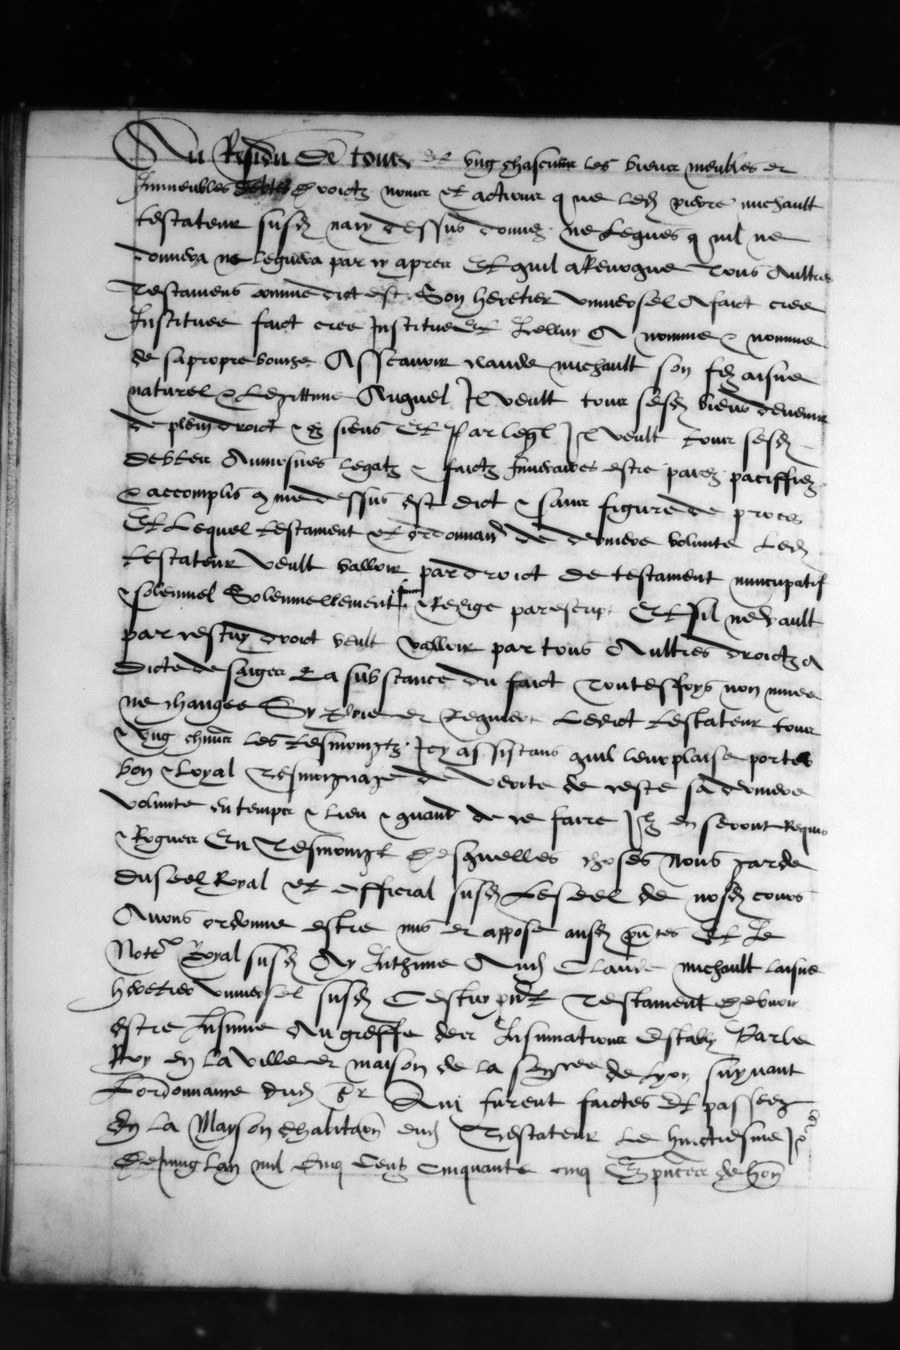 Au Residu de tous et ung chascuns les biens meubles et
Immeubles droictz noms et actions que led pierre michault
testateur susd nay dessus donnez ne legues quil ne
donnera ne leguera par cy apres Et quil a Revoque tous Aultres
testamens comme dict est Son heretier universel A faict cree
Institue faict cree Institue Et Icelluy A nomme & nomme
de sa propre bouche Asscavoir claude michault son filz aisne
naturel & Legittime Auquel Il veult tous sesd biens devenir
de plein droict & es siens Et Par lequel Il veult tous sesd
debtes Aumosnes legatz & fraictz funeraires estre paiez paciffiez
& accomplis comme dessus est dict & sans figure de proces
Et Lequel testament et ordonnance de derniere volunte Led
testateur veult valloir par droict de testament nuncupatif
& solennel Solennellement faict & Redige par escript Et sil ne vault
par cestuy droict veult valloir par tous Aultres droictz A
Dicte de saiges La substance du faict toutesfoys non muee
ne changee Sy Prie et Requiert Ledict testateur tous
& ung chacun les tesmoingtz Icy assistans quil leur plaise porter
bon & Loyal tesmoignaige de verite de ceste sa derniere
volunte en temps & lieu & quant de ce faire Ilz en seront Requis
& Roguez En tesmoingt desquelles choses Nous garde
du seel Royal et official susd Le seel de nosd cours
Avons ordonne estre mis et appose ausd presentes Et Le
Notere Royal susd Ay Inthime Aud Claude michault laisne
heretier universel susd Cestuy present testament debvoir
estre Insinue Au greffe des Insinuations Estably Par le
Roy en la ville et maison de la senee de Lyon suyvant
Lordonnance dud sr Qui furent faictes Et passees
En La Mayson dhabitaon dud Testateur Le huictiesme Jor
De Juing Lan mil Cinq Centz Cinquante cinq Es presences de hon